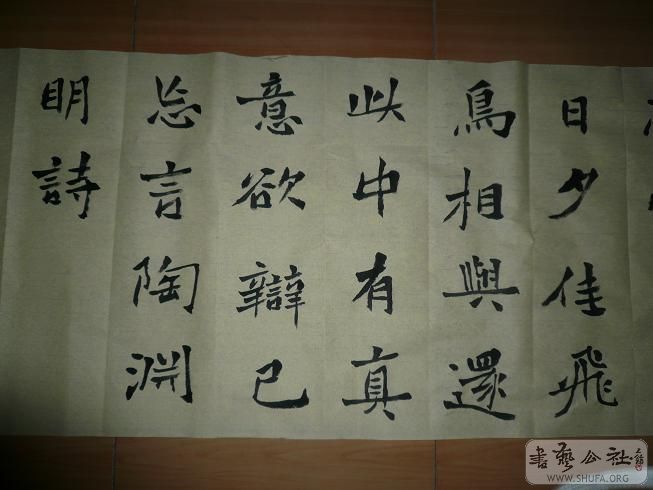 日夕佳飛
鳥相與還
此中有真
意欲辯已
忘言陶淵
明詩
書藝公社
WWW.SHUFA.ORG